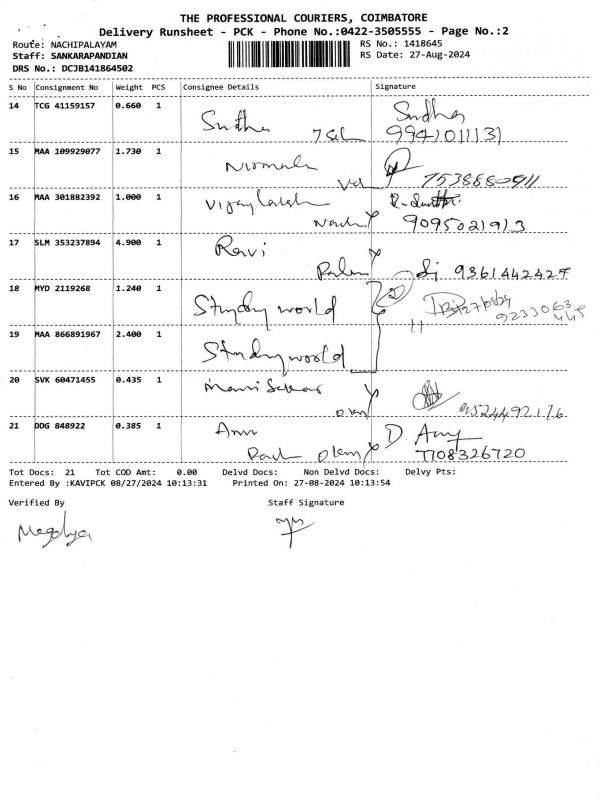 THE PROFESSIONAL COURIERS, COIMBATORE
Delivery Runsheet - PCK - Phone No.:0422-3505555 - Page No.:2
Route: NACHIPALAYAM
RS No.: 1418645
Staff: SANKARAPANDIAN
RS Date: 27-Aug-2024
DRS No.: DCJB141864502
S No Consignment No Weight PCS Consignee Details Signature
14 TCG 41159157 0.660 1 Sudha Sudha
9941011131
15 MAA 109929077 1.730 1 Nirmala
7538850911
16 MAA 301882392 1.000 1 Vijaylaksh
9095021913
17 SLM 353237894 4.900 1 Ravi
9361442424
18 MYD 2119268 1.240 1 Study world
19 MAA 866891967 2.400 1 Study world
20 SVK 60471455 0.435 1
9524492176
21 DDG 848922 0.385 1 D.
7708326720
Tot Docs: 21 Tot COD Amt: 0.00 Delvd Docs: Non Delvd Docs: Delvy Pts:
Entered By :KAVIPCK 08/27/2024 10:13:31 Printed On: 27-08-2024 10:13:54
Verified By Staff Signature